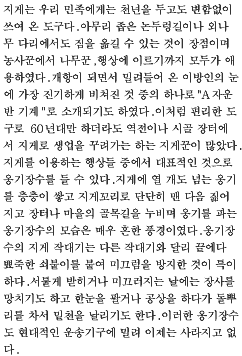 지게는 우리 민족에게는 천년을 두고도 변함없이
쓰여 온 도구다.아무리 좁은 논두렁길이나 외나
무 다리에서도 짐을 옮길 수 있는 것이 장점이며
농사꾼에서 나무꾼,행상에 이르기까지 모두가 애
용하였다.개항이 되면서 밀려들어 온 이방인의 눈
에 가장 진기하게 비쳐진 것 중의 하나로"A자운
반 기계"로 소개되기도 하였다.이처럼 편리한 도
구로 60년대만 하더라도 역전이나 시골 장터에
서 지게로 생업을 꾸려가는 하는 지게꾼이 많았다.
지게를 이용하는 행상들 중에서 대표적인 것으로
옹기장수를 들 수 있다.지게에 열 개도 넘는 옹기
를 층층이 쌓고 지게꼬리로 단단히 맨 다음 짊어
지고 장터나 마을의 골목길을 누비며 옹기를 파는
옹기장수의 모습은 매우 흔한 풍경이였다.옹기장
수의 지게 작대기는 다른 작대기와 달리 끝에다
뾰죽한 쇠붙이를 붙여 미끄럼을 방지한 것이 특이
하다.서툴게 받히거나 미끄러지는 날에는 장사를
망치기도 하고 한눈을 팔거나 공상을 하다가 돌뿌
리를 차서 밑천을 날리기도 한다.이러한 옹기장수
도 현대적인 운송기구에 밀려 이제는 사라지고 없
다.